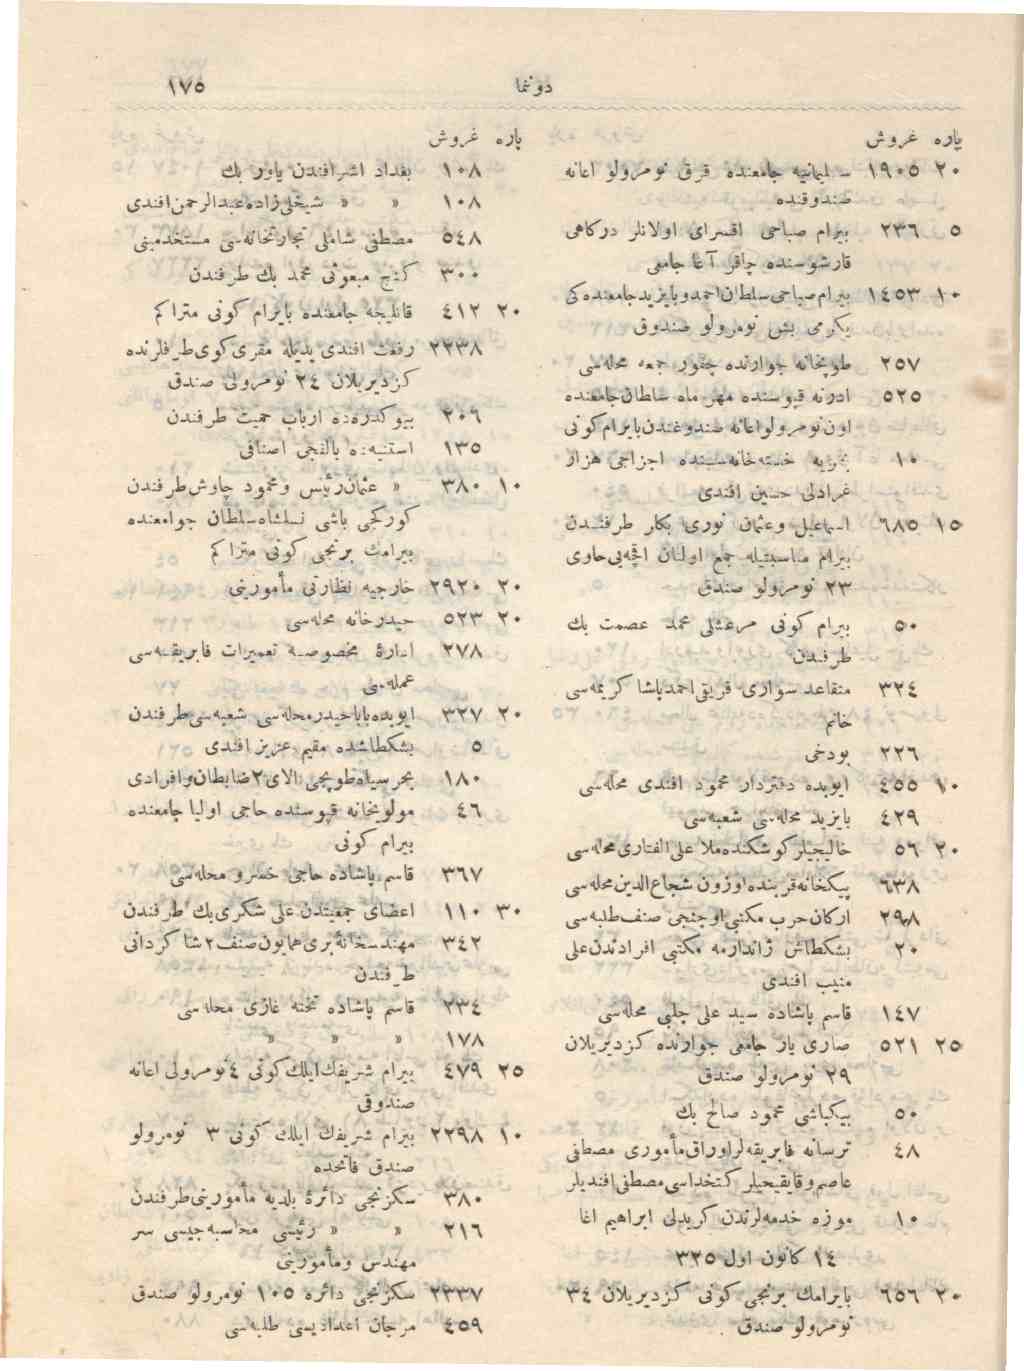 دوننما ١٧٥
پاره غروش
٢٠ ١٩٠٥ سلیمانیه جامعنده قرق نومرولو اعانه
صندوقنده
٥ ٢٣٦ بیرام صباحی اقسرای اولانلر درکاهی
قارشوسنده چاقر آغا جامعی
١٠ ١٤٥٣ بیرام صباحی سلطان احمد و بایزید جامعنده کی
یکرمی بش نومرولو صندوق
٢٥٧ طوپخانه جوارنده چقور جمعه محله‌سی
٥٢٥ ادرنه قپوسنده مهر ماه سلطان جامعنده
اون نومرولو اعانه صندوغندن بایرام کونی
١٠ بحریه خسته‌خانه‌سنده اجزاجی هزار
غرادلی حسین افندی
١٥ ٦٨٥ اسماعیل وعثمان نوری بکلر طرفندن
بیرام مناسبتیله جمع اولنان اقچه‌یی حاوی
٢٣ نومرولو صندق
٥٠ بیرام کونی مرعشلی محمد عصمت بك
طرفندن
٣٢٤ متقاعد سواری فریقی احمد پاشا کریمه‌سی
خانم
٢٢٦ بودخی
١٠ ٤٥٥ ایوبده دفتردار محمود افندی محله‌سی
٤٢٩ بایزید محله‌سی شعبه‌سی
٢٠ ٥٦ خالیجیلر کوشکنده ملا علی الفناری محله‌سی
٦٣٨ پیکخانه قربنده اوزون شجاع الدین محله‌سی
٢٩٨ ارکان حرب مکتبی اوچنجی صنف طلبه‌سی
٢٠ بشکطاش ژاندارمه مکتبی افرادندن علی
منیب افندی
١٤٧ قاسم پاشاده سید علی چلبی محله‌سی
٢٥ ٥٢١ صاری یار جامعی جوارنده کزدیریلان
٢٩ نومرولو صندق
٥٠ بیکباشی محمود صالح بك
٤٨ ترسانه فابریقه‌لر اوراق مأموری مصطفی
عاصم وقایقیجیلر کتخداسی مصطفی افندیلر
١٠ موزه خدمه‌لرندن کریدلی ابراهیم اغا
١٤ کانون اول ٣٢٥
٢٠ ٦٥٦ بایرامك برنجی کونی کزدیریلان ٣٤
نومرولو صندق
پاره غروش
١٠٨ بغداد اشرافندن یاور بك
١٠٨ » » شیخلی‌زاده عبدالرحمن افندی
٥٤٨ مصطفی شاملی تجارتخانه‌سی مستخدمینی
٣٠٠ کنج مبعوثی محمد بك طرفندن
٢٠ ٤١٢ قانلیجه جامعنده بایرام کونی متراکم
٢٢٣٨ رفعت افندی یدیله مقری‌کوی طرفلرنده
کزدیریلان ٢٤ نومرولی صندق
٢٠٦ بیوکدره‌ده ارباب حمیت طرفندن
١٣٥ استنیه‌ده بالقجی اصنافی
١٠ ٣٨٠ » عثمان رئیس ومحمود چاوش طرفندن
کورکجی باشی نسلشاه سلطان جوامعنده
بیرامك برنجی کونی متراکم
٢٠ ٢٩٢٠ خارجیه نظارتی مأمورینی
٢٠ ٥٢٣ حیدرخانه محله‌سی
٢٧٨ ادارهٔ مخصوصه تعمیرات فابریقه‌سی
عمله‌سی
٢٠ ٣٢٧ ایوبده بابا حیدر محله‌سی شعبه‌سی طرفندن
٥ بشکطاشده مقیم عزیز افندی
١٨٠ بحر سیاه طوپجی الای ٢ ضابطان وافرادی
٤٦ مولویخانه قپوسنده حاجی اولیا جامعنده
بیرام کونی
٣٦٧ قاسم پاشاده حاجی خسرو محله‌سی
٣٠ ١١٠ اعضای جمعیتدن علی شکری بك طرفندن
٣٤٢ مهندسخانهٔ بری همایون صنف ٢ شاکردانی
طرفندن
٢٣٤ قاسم پاشاده تخته غازی محله‌سی
١٧٨ » » »
٢٥ ٤٧٩ بیرام شریفك ایلك کونی ٤ نومرولی اعانه
صندوقی
١٠ ٢٢٩٨ بیرام شریفك ایلك کونی ٣ نومرولو
صندق فاتحده
٣٨٠ سکزنجی دائرهٔ بلدیه مأمورینی طرفندن
٢١٦ » » رئیسی محاسبه‌جیسی سر
مهندس ومأمورینی
٢٣٣٧ سکزنجی دائره ١٠٥ نومرولو صندق
٤٥٩ مرجان اعدادیسی طلبه‌سی